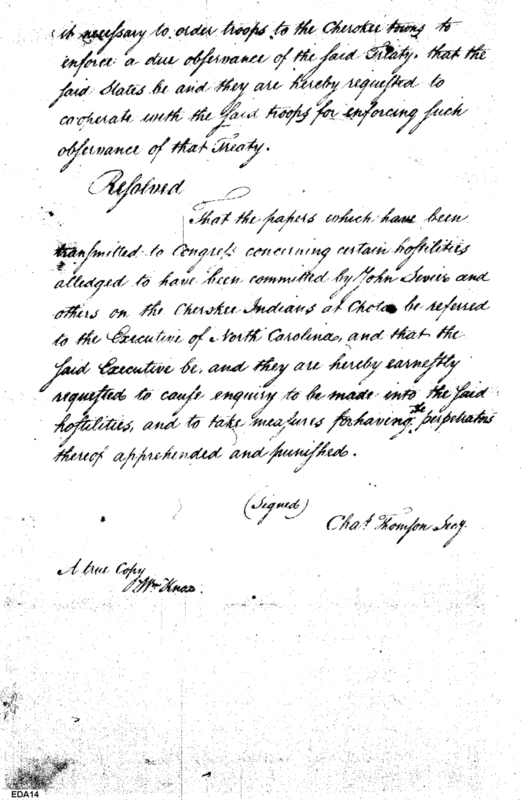 it necessary to order troops to the Cherokee towns to
enforce a due observance of the said Treaty. that the
said States be and they are hereby requested to
cooperate with the said troops for enforcing such
observance of that Treaty.
Resolved
That the papers which have been
transmitted to Congress concerning certain hostilities
alledged to have been committed by John Sevier and
others on the Cherokee Indians at Chota be referred
to the Executive of North Carolina, and that the
said Executive be, and they are hereby earnestly
requested to cause enquiry to be made into the said
hostilities, and to take measures for having the perpetrators
thereof apprehended and punished.
(Signed)
Chas. Thomson Secy.
A true Copy
Wm Knox.
EDA14